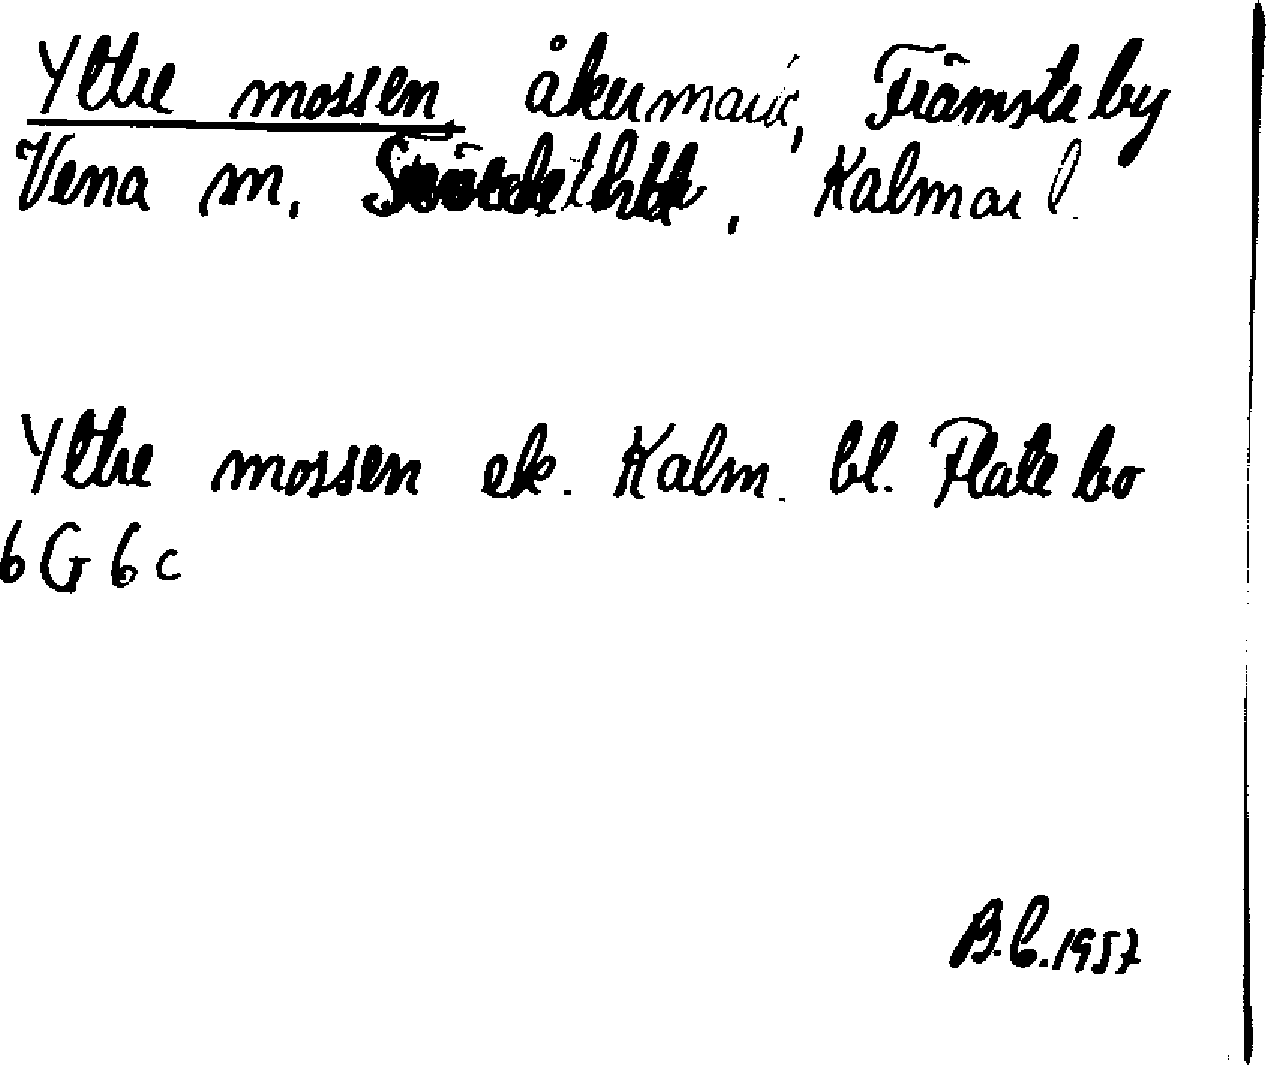 Yttre mossen, åkermark, Främsteby
Vena sn, Sevede hd, Kalmar l.
Yttre mossen ek. Kalm. bl. Flatebo
6 G 6 c
B.C. 1957